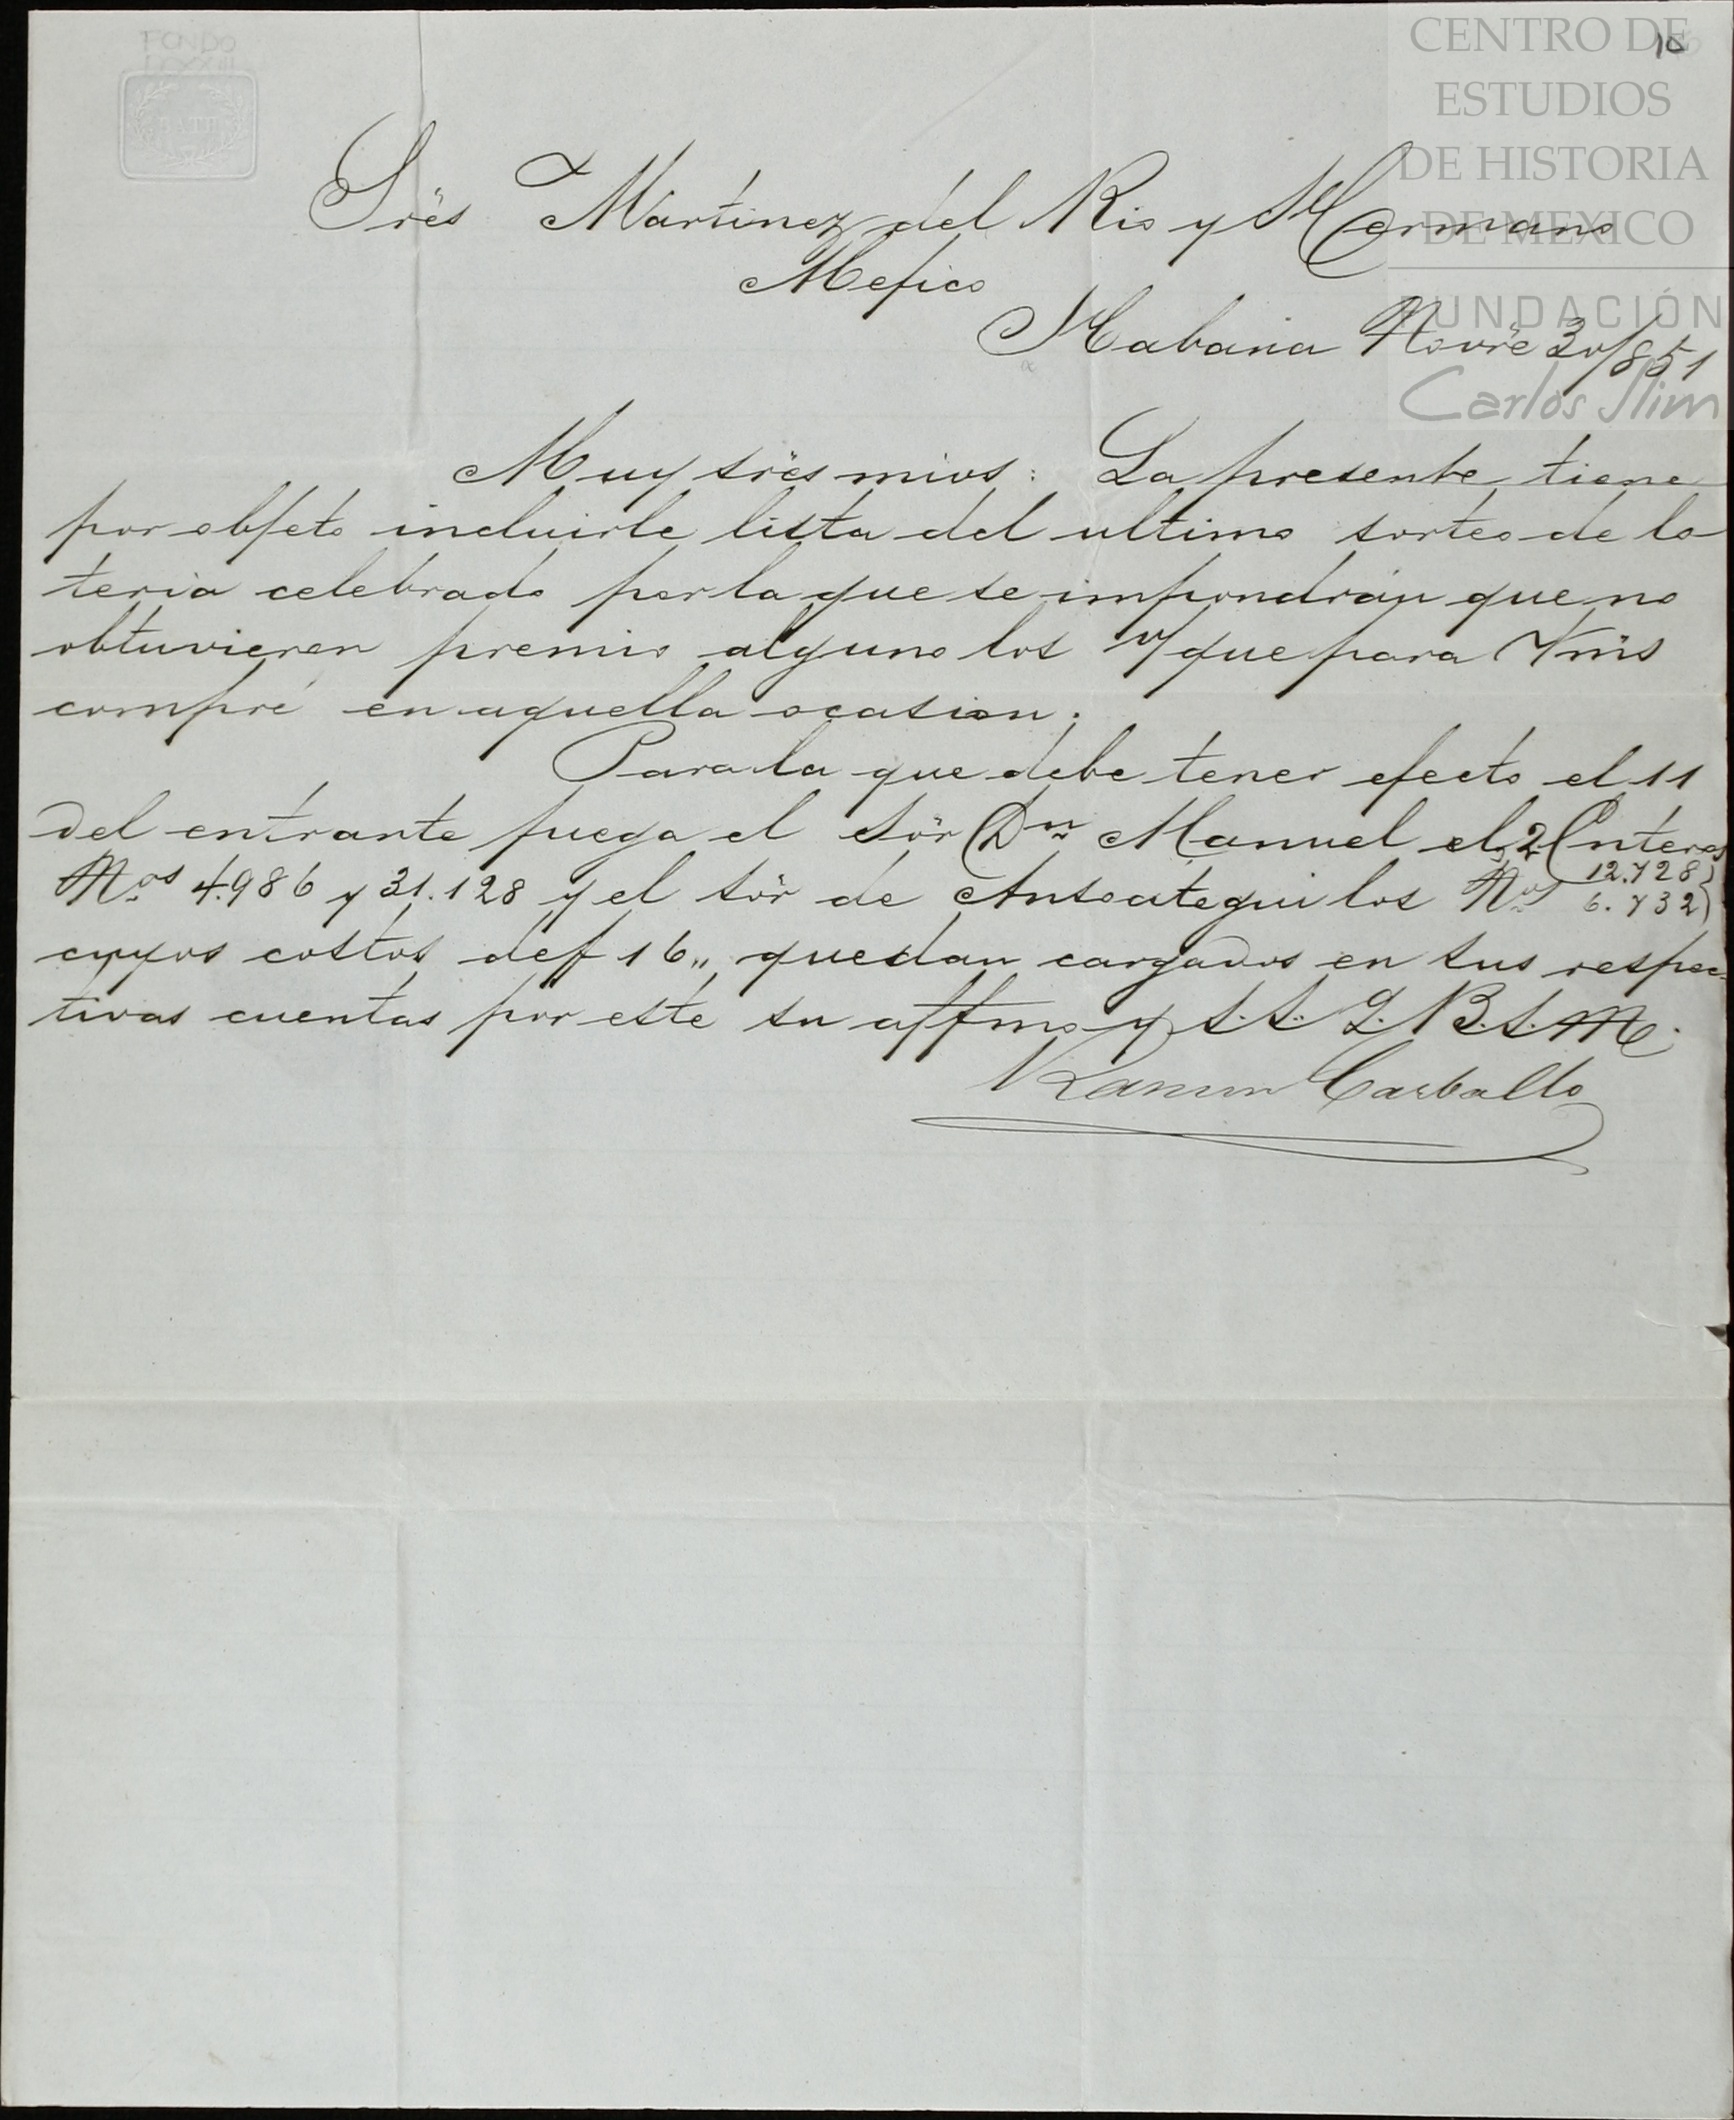 FONDO
LXXXIII
BATH
10
CENTRO DE
ESTUDIOS
DE HISTORIA
DE MEXICO
FUNDACIÓN
Carlos Slim
Sres Martinez del Rio y Hermano
Mejico
Habana Novre 30/851
Muy sres mios: La presente tiene
por objeto incluirle lista del ultimo sorteo de lo
teria celebrado por la que se impondrán que no
obtuvieron premio alguno los que para Vms
compré en aquella ocasion.
Para la que debe tener efecto el 11
del entrante juega el Sor Dn Manuel el 2 Enteros
Nos 4.986 y 31.128 y el sor de Ansoategui los Nos 12.728
6.732
cuyos costos de $ 16,, quedan cargados en sus respec
tivas cuentas por este su affmo y S.S. Q.B.S.M.
Ramon Carballo